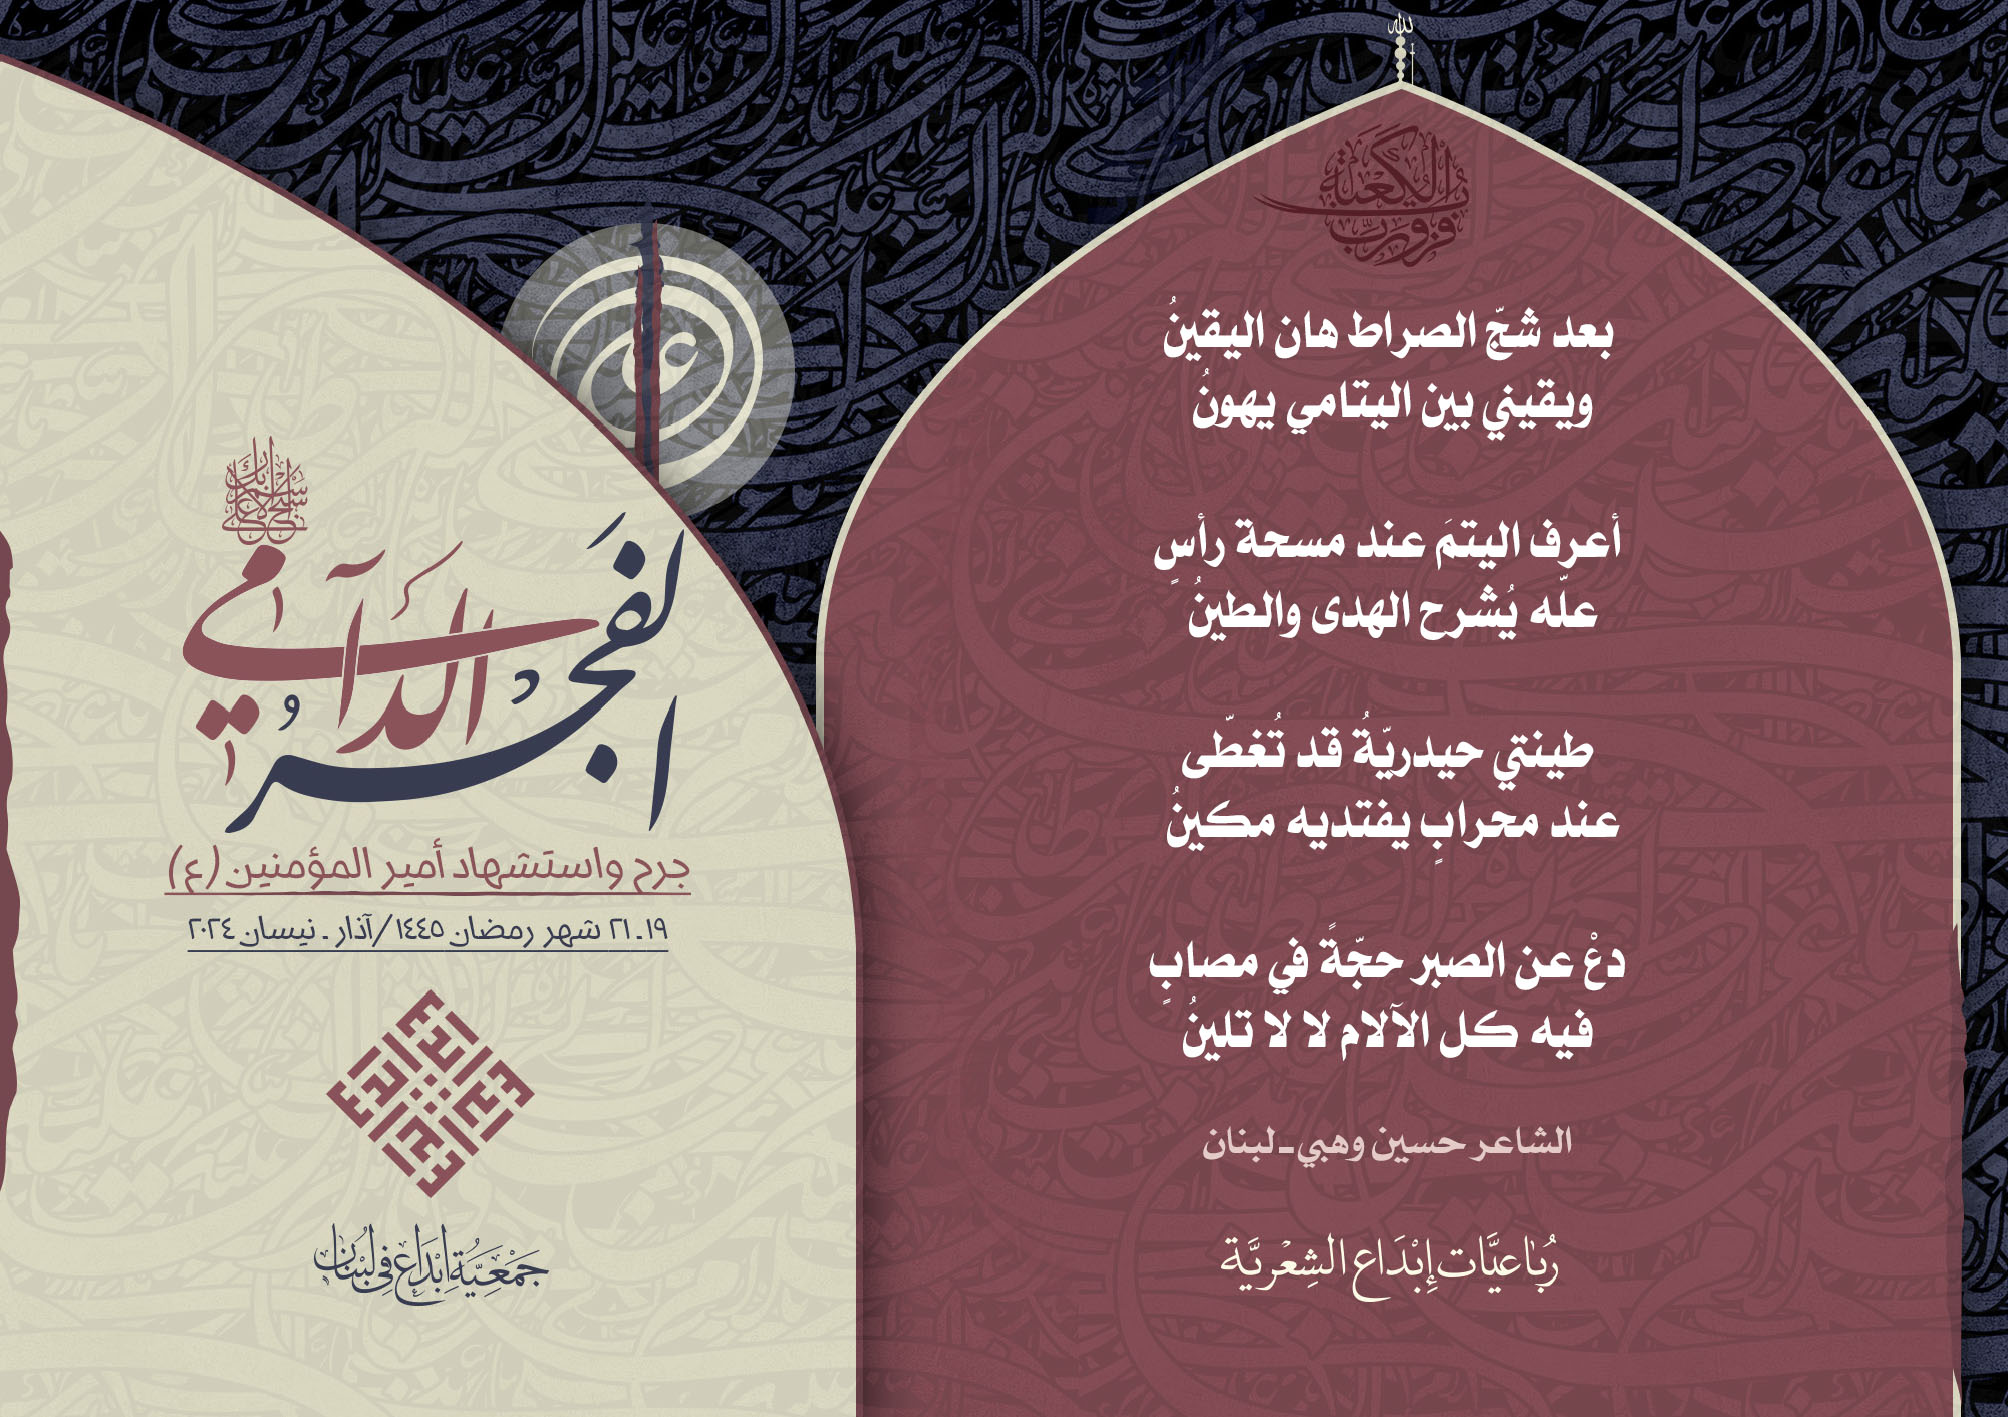 الله
فزت ورب الكعبة
بعد شجّ الصراط هان اليقينُ
ويقيني بين اليتامى يهونُ
أعرف اليتمَ عند مسحة رأسٍ
علّه يُشرح الهدى والطينُ
طينتي حيدريّةُ قد تُغطّى
عند محرابٍ يفتديه مكينُ
دعْ عن الصبر حجّةً في مصابٍ
فيه كل الآلام لا لا تلينُ
الشاعر حسين وهبي - لبنان
رُبَاعيَّات إِبْدَاع الشِعْريَّة
علي
سَبِّحِ اسْمَ رَبِّكَ الأَعْلَى
الفَجْرُ الدَّامِي
جرح واستشهاد أمير المؤمنين (ع)
١٩ - ٢١ شهر رمضان ١٤٤٥ / آذار - نيسان ٢٠٢٤
جَمْعِيَّة إِبْدَاع فِي لُبْنَان